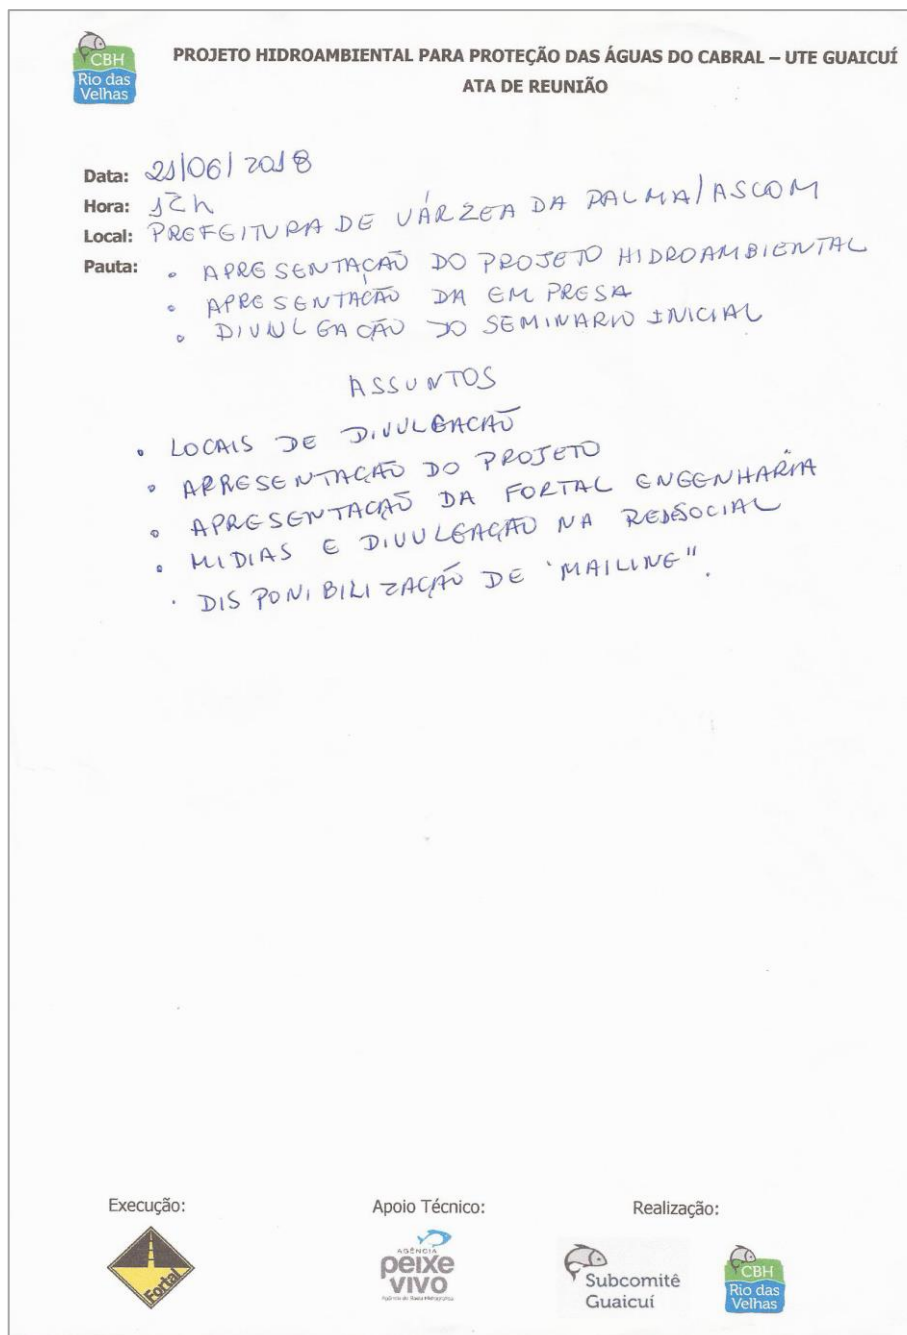 CBH
Rio das
Velhas
PROJETO HIDROAMBIENTAL PARA PROTEÇÃO DAS ÁGUAS DO CABRAL – UTE GUAICUÍ
ATA DE REUNIÃO
Data: 21/06/2018
Hora: 12h
Local: PREFEITURA DE VÁRZEA DA PALMA/ASCOM
Pauta: • APRESENTAÇÃO DO PROJETO HIDROAMBIENTAL
• APRESENTAÇÃO DA EMPRESA
• DIVULGAÇÃO DO SEMINARIO INICIAL
ASSUNTOS
• LOCAIS DE DIVULGAÇÃO
• APRESENTAÇÃO DO PROJETO
• APRESENTAÇÃO DA FORTAL ENGENHARIA
• MIDIAS E DIVULGAÇÃO NA REDESOCIAL
• DISPONIBILIZAÇÃO DE 'MAILING".
Execução: Apoio Técnico: Realização:
Fortal
AGÊNCIA
peixe
vivo
Subcomitê
Guaicuí
CBH
Rio das
Velhas